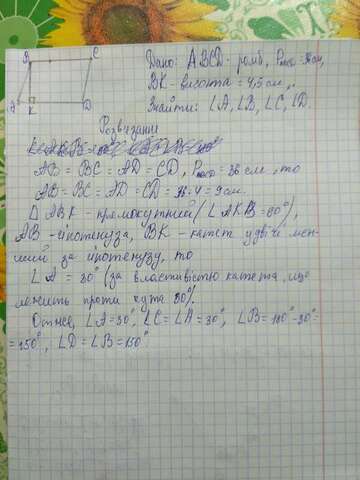 B C
Дано: ABCD - ромб, Pавсд = 36 см,
BK - висота = 4,5 см,
A K D
Знайти: ∠A, ∠B, ∠C, ∠D.
Розвязання
AB = BC = AD = CD, Pавсд = 36 см, то
AB = BC = AD = CD = 36 : 4 = 9 см.
Δ ABK - прямокутний (∠AKB = 90°),
AB - гіпотенуза, BK - катет удвічі мен-
ший за гіпотенузу, то
∠A = 30° (за властивістю катета, що
лежить проти кута 30°).
Отже, ∠A = 30°, ∠C = ∠A = 30°, ∠B = 180° - 30° =
= 150°, ∠D = ∠B = 150°